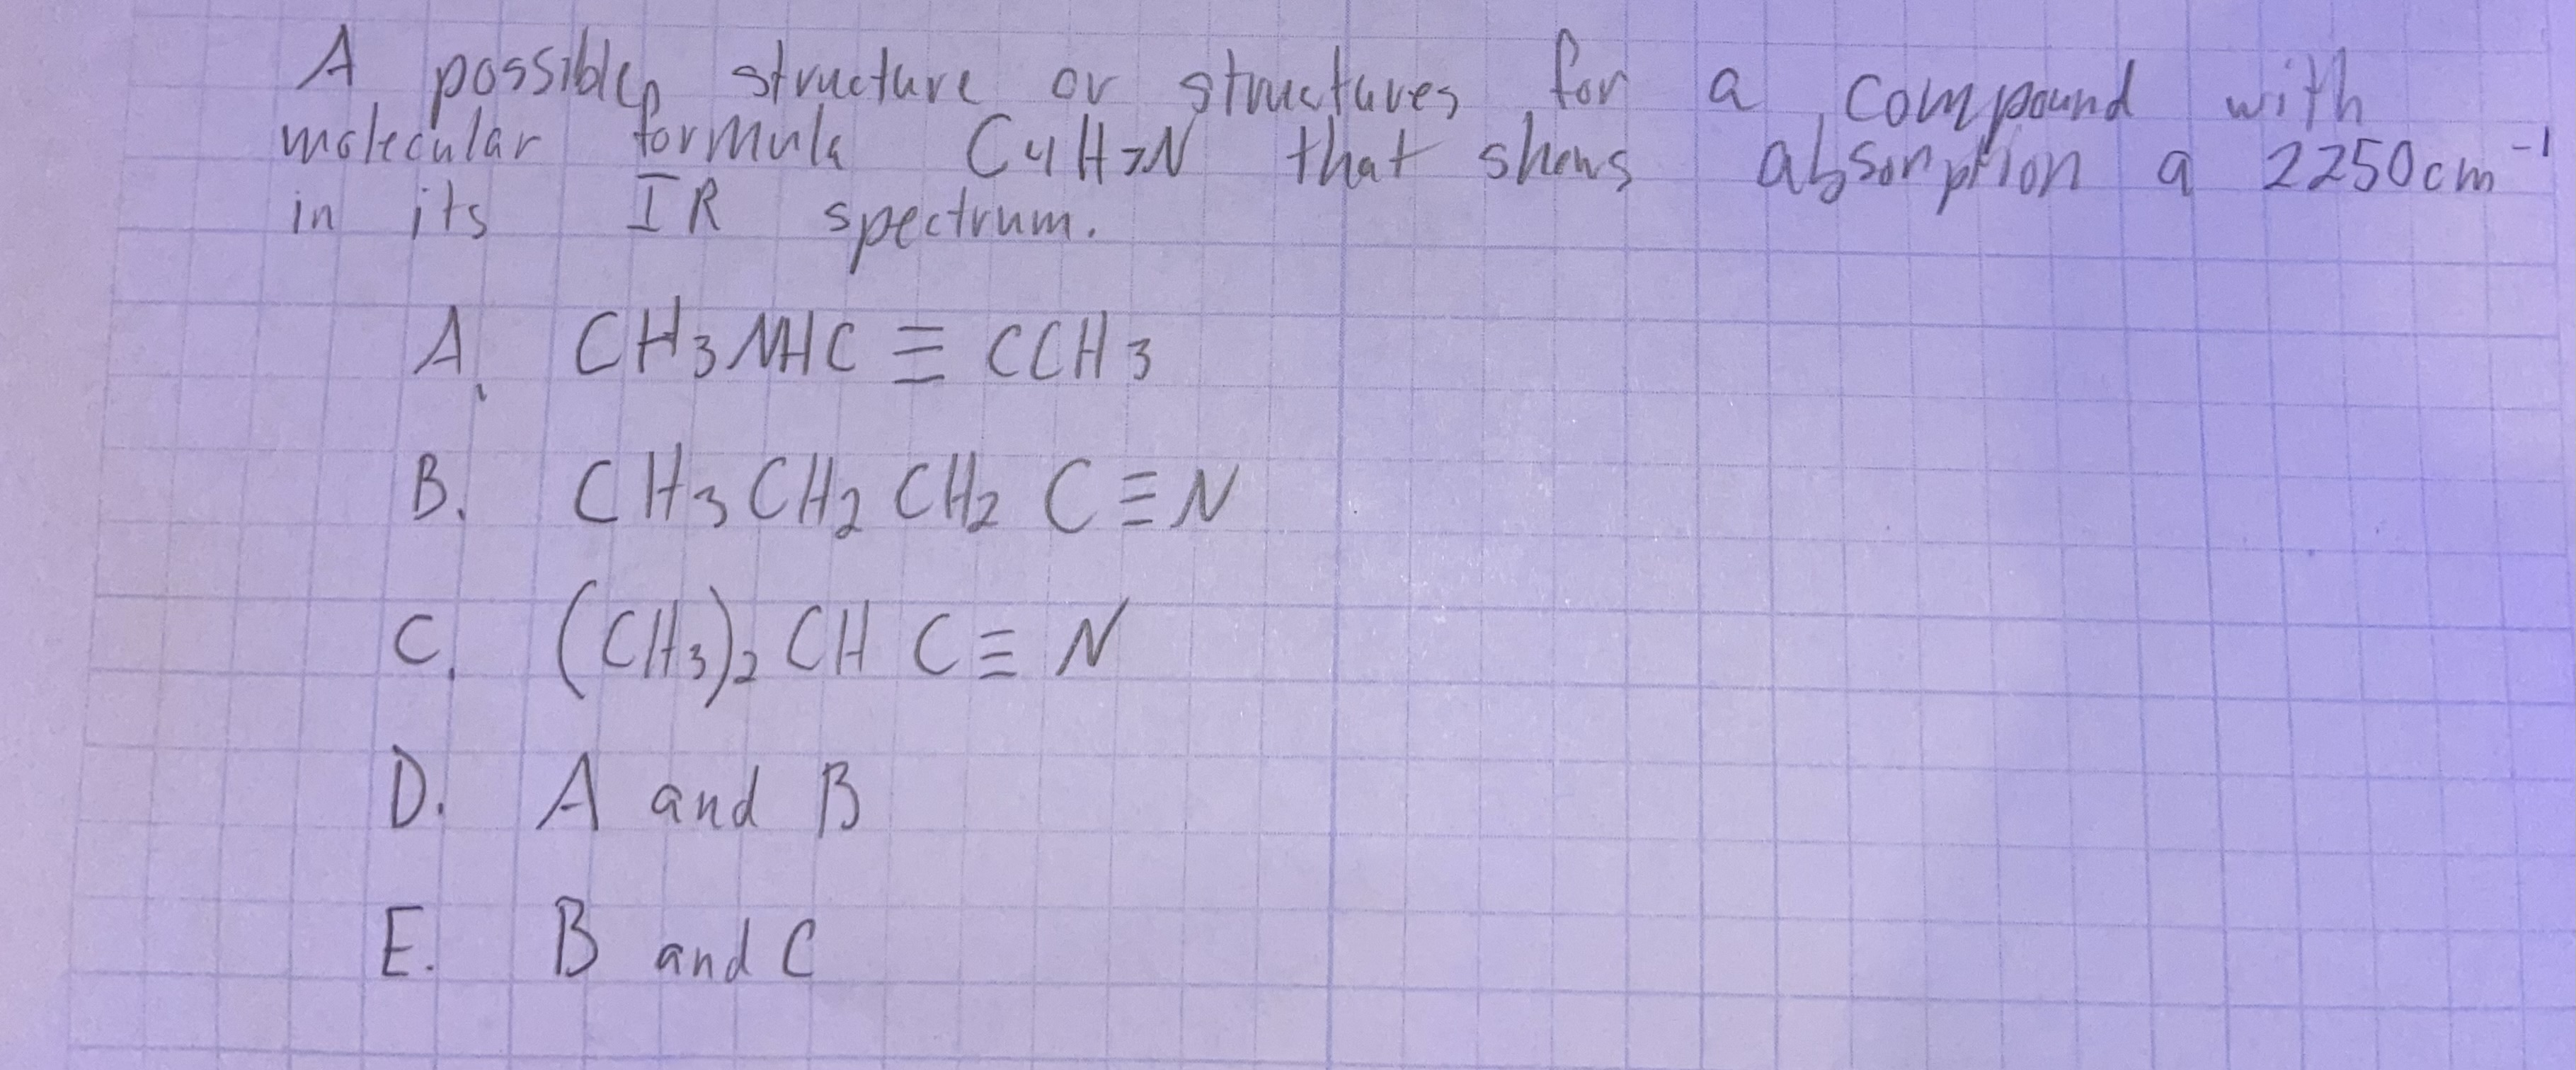 A possible structure or structures for a compound with
molecular formula C4H7N that shows absorption a 2250cm⁻¹
in its IR spectrum.
A. CH3NHC ≡ CCH3
B. CH3CH2CH2C≡N
C. (CH3)2CHC≡N
D. A and B
E. B and C